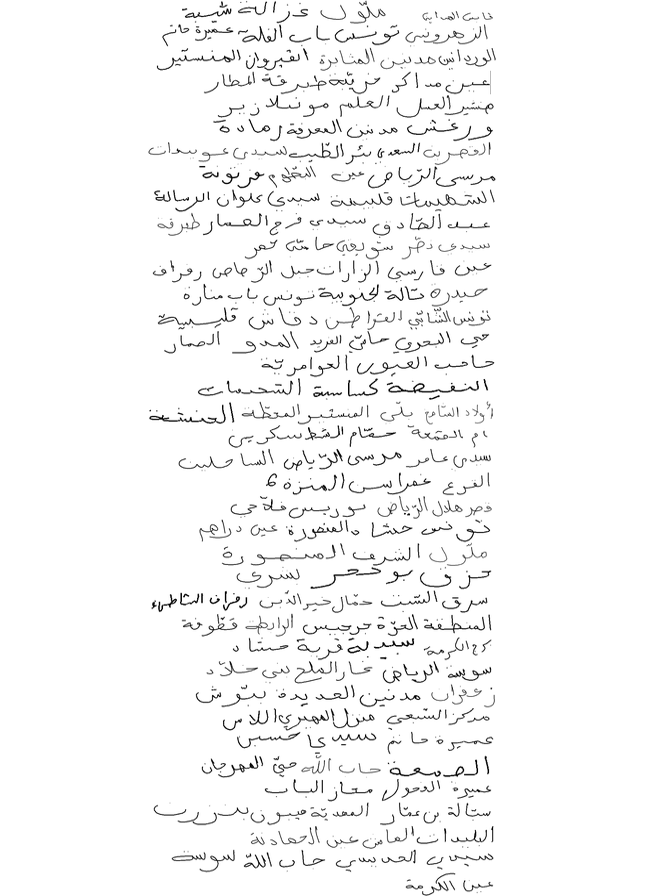 ملّول غزالة شيبة
الزهروني تونس باب الفلة عميرة حاتم
الوردانين مدنين المنارة القيروان المنستير
عين مذاكر خزنية طبرقة المطار
هنشير العسل العلم مونبلازير
ورغش مدنين المعرفة رمادة
القصرين السعدي بئر الطّيب سيدي عويدات
مرسى الرّياض عين مزنونة
الشهيمات قليبية سيدي علوان الرسالة
عبد الصّادق سيدي فرج العسار طبرقة
سيدي سويعي حامّي
عين فارسي الزارات جبل الرّصاص رفراف
حيدرة تالة الجنوبية تونس باب منارة
تونس الشّابّي دقاش قليبية
حي البحري حامّي الفريد الصمار
حاسب العيون العوامريّة
النفيضة كساسبة الشحيمات
أولاد الشّامخ بلّي المنستير الحنشة
ام القمعة حمّام الشط سكرين
سيدي عامر مرسى الرّياض الساحلين
القرع غمراسن المنزه 6
قصر هلال الرّياض توريس فلاحي
تونس حشاد المنصورة عين دراهم
ملّول الشرف المنصورة
حزق بوحجر بشري
سوق السّبت حمّال خير الدّين رفراف الشاطىء
المنطقة الحرّة جرجيس الرابطة قطّوفة
برج الكرمة سبيبة قربة حشاد
سوسة الرياض غار الملح بني خلاّد
زعفران مدنين الجديدة بتّوش
مركز الشعبي منزل المهيري اللاس
عميرة حاتم سيدي حسين
الصمعة جاب اللّه حيّ المهرجان
عميرة الفحول معاز الباب
ستالة بن عمّار المهديّة ميبون بنزرت
البليدات عين الحمادنة
سيدي الحديدي جاب اللّه سوسة
عين الكرمة